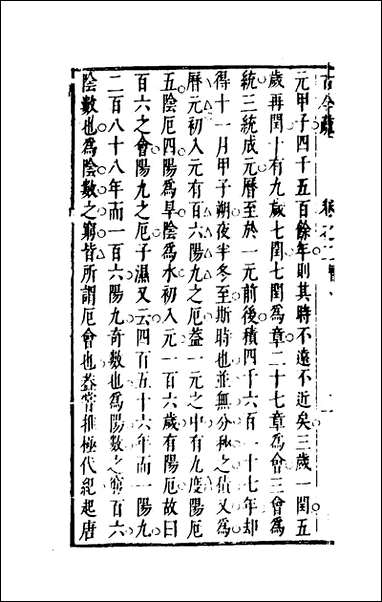 古今疏　卷之二
元甲子四千五百餘年則其時不遠不近矣三歲一閏五
歲再閏十有九歲七閏七閏為章二十七章為會三會為
統三統成元曆至於一元前後積四千六百一十七年却
得十一月甲子朔夜半冬至斯時也並無分秒之佔又為
曆元初入元有百六陽九之厄蓋一元之中有九度陽厄
五陰厄四陽為旱陰為水初入元一百六歲有陽厄故曰
百六之會陽九之厄子濕又云四百五十六年而一陽九
二百八十八年而一百六陽九奇數也為陽數之窮百六
陰數也為陰數之窮皆所謂厄會也蓋嘗推極代紀起唐